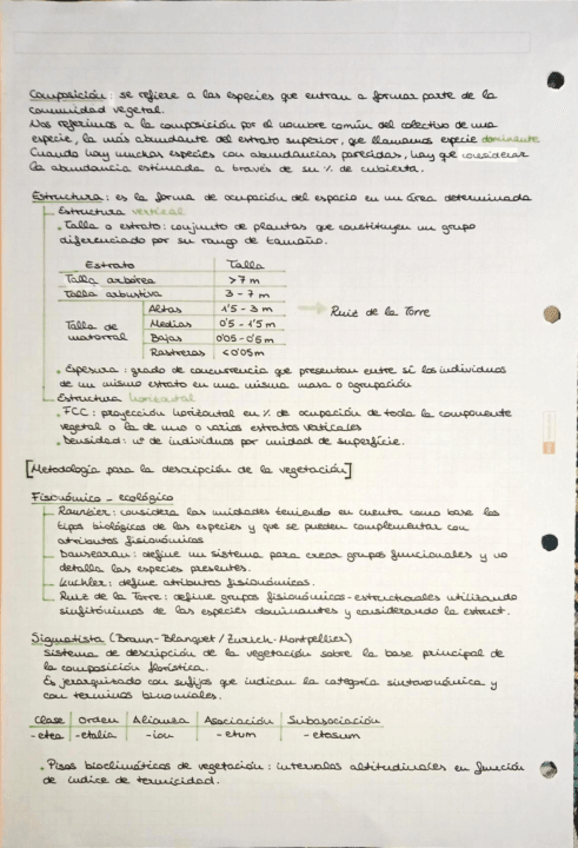 Composición: se refiere a las especies que entran a formar parte de la
comunidad vegetal.
Nos referimos a la composición por el nombre común del colectivo de una
especie, la más abundante del estrato superior, que llamamos especie dominante
Cuando hay muchas especies con abundancias parecidas, hay que considerar
la abundancia estimada a través de su % de cubierta.
Estructura: es la forma de ocupación del espacio en un área determinada
Estructura vertical
. Talla o estrato: conjunto de plantas que constituyen un grupo
diferenciado por su rango de tamaño.
Estrato Talla
Talla arbórea >7 m
Talla arbustiva 3 - 7 m
Talla de matorral Altas 1'5 - 3 m
Medias 0'5 - 1'5 m
Bajas 0'05 - 0'5 m
Rastreras <0'05 m
Ruiz de la Torre
. Espesura: grado de concurrencia que presentan entre sí los individuos
de un mismo estrato en una misma masa o agrupación
Estructura horizontal
. FCC: proyección horizontal en % de ocupación de toda la componente
vegetal o la de uno o varios estratos verticales
. Densidad: nº de individuos por unidad de superficie.
[Metodología para la descripción de la vegetación]
Fisionómico - ecológico
Raunkier: considera las unidades teniendo en cuenta como base los
tipos biológicos de las especies y que se pueden complementar con
atributos fisionómicos
Dansereau: define un sistema para crear grupos funcionales y no
detalla las especies presentes.
Kuchler: define atributos fisionómicos.
Ruiz de la Torre: define grupos fisionómicos-estructurales utilizando
sinfitónimos de las especies dominantes y considerando la estruct.
Sigmatista (Braun-Blanquet / Zurich-Montpellier)
sistema de descripción de la vegetación sobre la base principal de
la composición florística.
Es jerarquizado con sufijos que indican la categoría sintaxonómica y
con terminos binomiales.
Clase Orden Alianza Asociación Subasociación
-etea -etalia -ion -etum -etosum
. Pisos bioclimáticos de vegetación: intervalos altitudinales en función
de índice de termicidad.